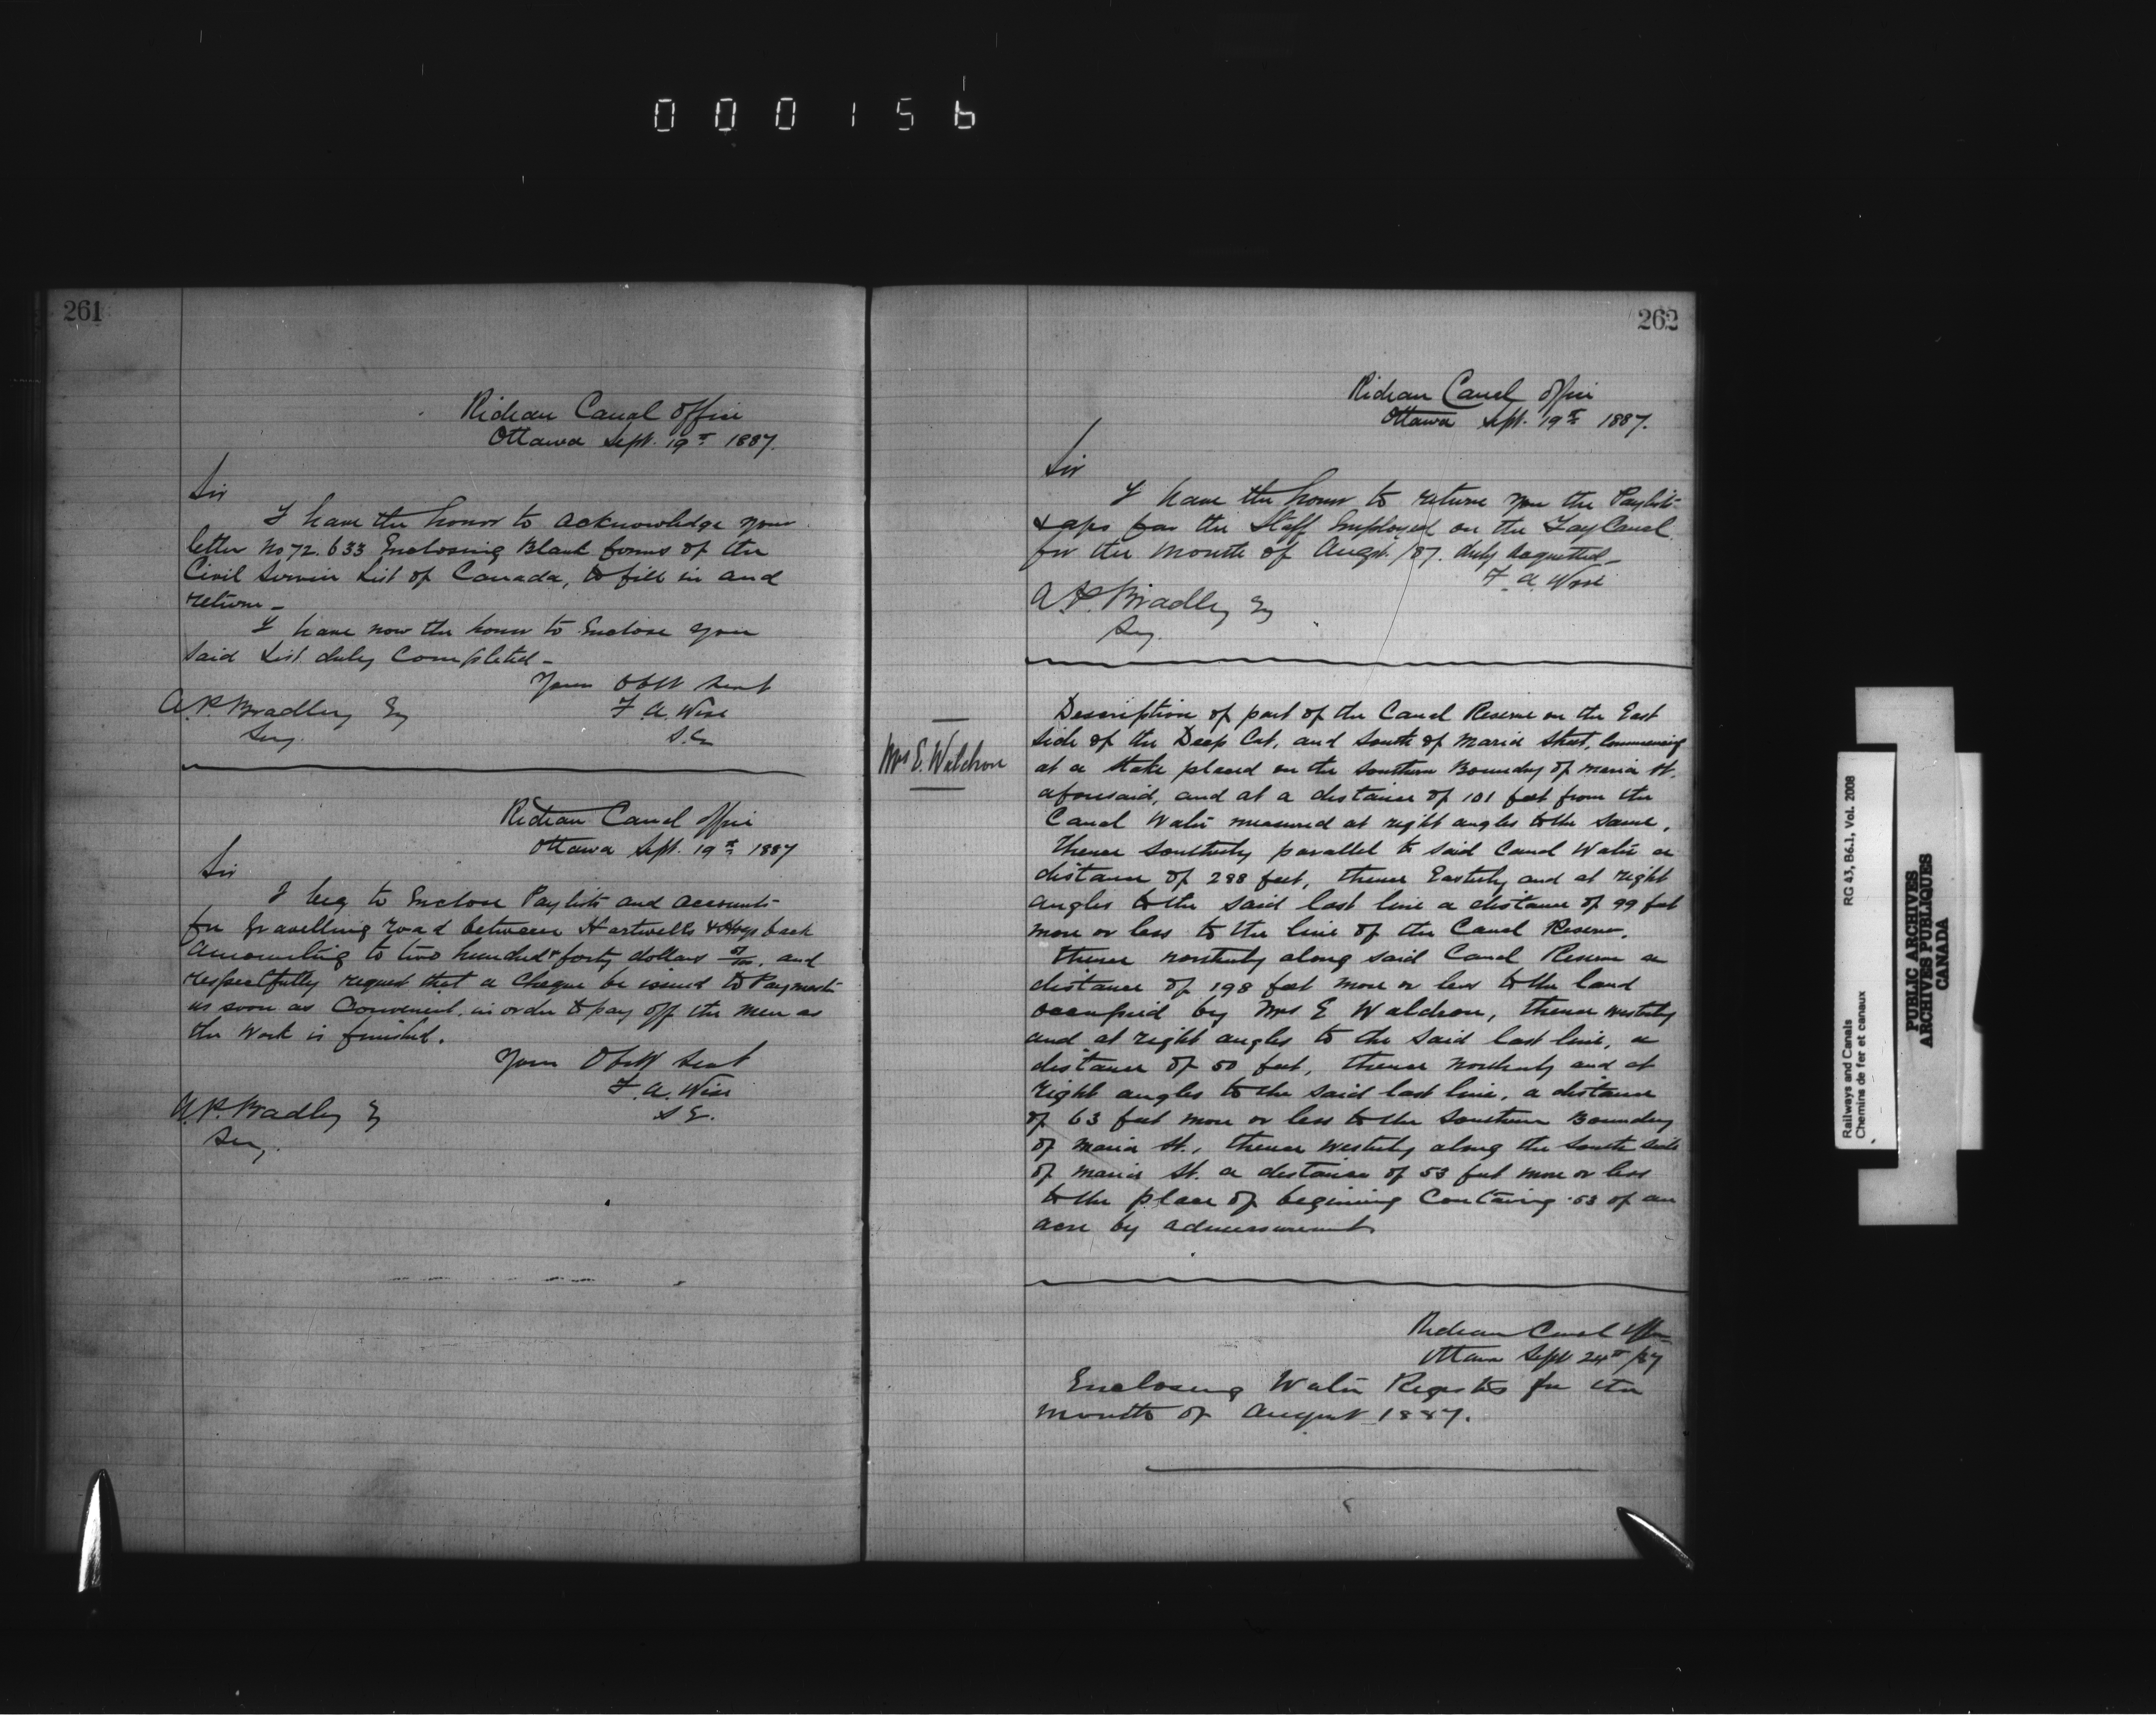 000156
261
Rideau Canal Office
Ottawa Sept. 19th 1887.
Sir
I have the honor to acknowledge your
letter No 72.633 Enclosing Blank forms of the
Civil Service List of Canada, to fill in and
return_
I have now the honor to Enclose you
said List duly Completed_
Yours Obt Servt
F. A. Wise
S.E.
A.P. Bradley Esq
Secy.
Rideau Canal Office
Ottawa Sept. 19th 1887
Sir
I beg to Enclose Paylists and accounts
for Gravelling road between Hartwells & Hogs back
Amounting to two hundred & forty dollars and
respectfully request that a Cheque be issued to Paymaster
as soon as Convenient in order to pay off the men as
the Work is finished.
Your Obt Servt
F. A. Wise
S.E.
A.P. Bradley Esq
Secy.
262
Rideau Canal Office
Ottawa Sept. 19th 1887.
Sir
I have the honor to return you the Paylist
for the Staff Employed on the Tay Canal
for the month of Augst. /87. duly receipted_
F. A. Wise
A.P. Bradley Esq
Secy.
Mrs E. Waldron
Description of part of the Canal Reserve on the East
side of the Deep Cut, and South of Maria Street, Commencing
at a stake placed on the Southern Boundry of Maria St.
aforesaid, and at a distance of 101 feet from the
Canal Water measured at right angles to the same,
thence Southerly parallel to said Canal Water a
distance of 288 feet, thence Easterly and at right
angles to the said last line a distance of 99 feet
more or less to the line of the Canal Reserve,
thence northerly along said Canal Reserve a
distance of 198 feet more or less to the land
occupied by Mrs E Waldron, thence westerly
and at right angles to the said last line, a
distance of 50 feet, thence Northerly and at
right angles to the said last line, a distance
of 63 feet more or less to the Southern Boundry
of Maria St., thence westerly along the South side
of Maria St. a distance of 53 feet more or less
to the place of begining Containing .53 of an
acre by admeasurement
Rideau Canal Office
Ottawa Sept 24th /87
Enclosing Water Registers for the
month of August 1887.
Railways and Canals
Chemins de fer et canaux
RG 43, B6.1, Vol. 2008
PUBLIC ARCHIVES
ARCHIVES PUBLIQUES
CANADA